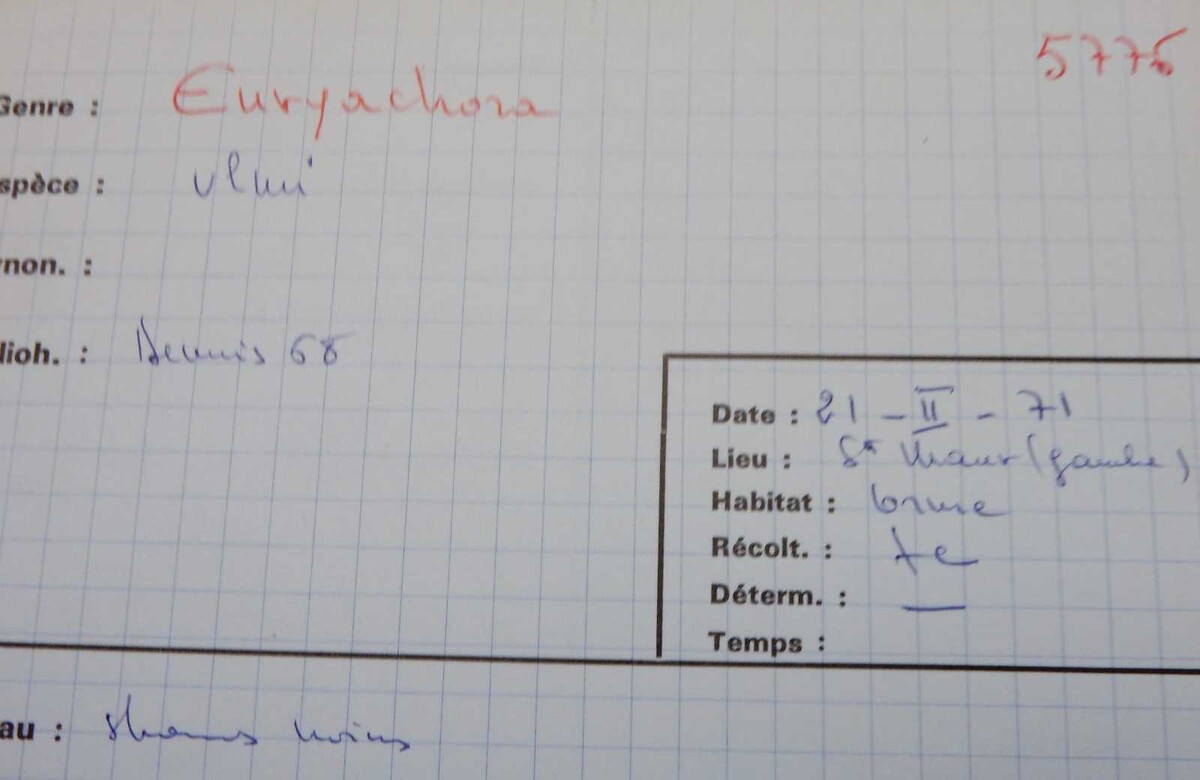 5776
Genre : Euryachora
spèce : ulmi
non. :
lioh. : Dennis 68
Date : 21 - II - 71
Lieu : St Maur (gauche)
Habitat : orme
Récolt. :
Déterm. : —
Temps :
au : stromas noirs